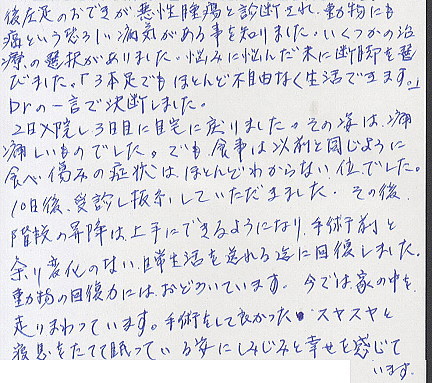 後左足のおできが悪性腫瘍と診断され、動物にも
癌という恐ろしい病気がある事を知りました。いくつかの治
療の選択がありました。悩みに悩んだ末に断脚を選
びました。「3本足でもほとんど不自由なく生活できます。」
Drの一言で決断しました。
2日入院し3日目に自宅に戻りました。その姿は、痛
痛しいものでした。でも、食事は以前と同じように
食べ、傷みの症状は、ほとんどわからない位でした。
10日後、受診し抜糸していただきました。その後、
階段の昇降は上手にできるようになり、手術前と
余り変化のない日常生活を送れる迄に回復しました。
動物の回復力にはおどろいています。今では家の中を
走りまわっています。手術をして良かった。スヤスヤと
寝息をたてて眠っている姿にしみじみと幸せを感じて
います。